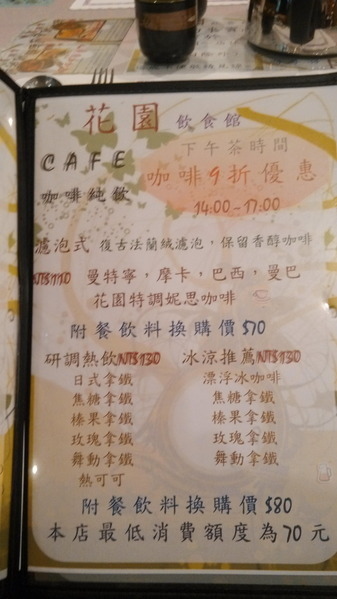 花園 飲食館
CAFE 下午茶時間
咖啡9折優惠
咖啡純飲
14:00-17:00
濾泡式 復古法蘭絨濾泡，保留香醇咖啡
NT$110 曼特寧，摩卡，巴西，曼巴
花園特調妮思咖啡
附餐飲料換購價$70
研調熱飲NT$130 冰涼推薦NT$130
日式拿鐵 漂浮冰咖啡
焦糖拿鐵 焦糖拿鐵
榛果拿鐵 榛果拿鐵
玫瑰拿鐵 玫瑰拿鐵
舞動拿鐵 舞動拿鐵
熱可可
附餐飲料換購價$80
本店最低消費額度為70元